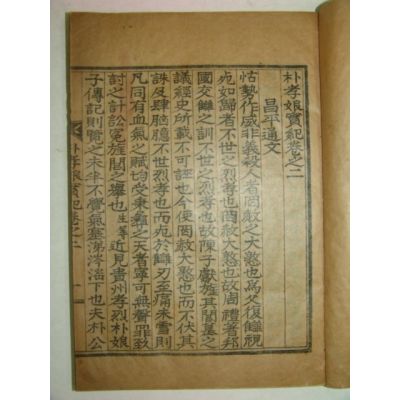 朴孝娘實紀卷之二
昌平通文
怙勢作威非義殺人者罔赦之大憝也爲父復讎視
死如歸者不世之烈孝也罔赦大憝也故周禮著邦
國交讎之訓不世之烈孝也故陳子獻旌其閭墓之
議經史所載不可誣也今使罔赦大憝也而不伏其
誅反肆胸臆不世烈孝也而死於讎刃至痛未雪則
凡同有血氣之賦均受秉彝之天者寧可無聲罪致
討之計訟寃旌閭之擧也生等近見貴州孝烈朴娘
子傳記則覽之未半不覺氣塞涕泗滔下也夫朴公
朴孝娘實紀卷之二
一